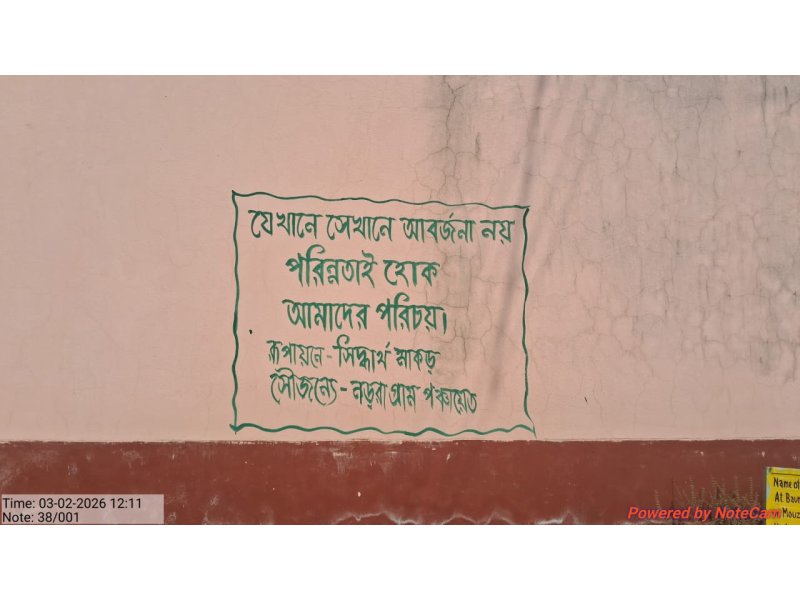 যেখানে সেখানে আবর্জনা নয়
পরিন্নতাই হোক
আমাদের পরিচয়।
রূপায়নে - সিদ্ধার্থ মাকড়
সৌজন্যে - নড়রা গ্রাম পঞ্চায়েত
Name of
At Bau
Mouz
Time: 03-02-2026 12:11
Note: 38/001
Powered by NoteCam